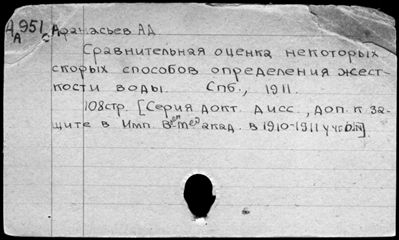 А951 Афанасьев АД
А с
Сравнительная оценка некоторых
скорых способов определения жест-
кости воды. Спб., 1911.
108стр. [Серия докт. дисс., доп. к за-
щите в Имп. Воен мед акад. в 1910-1911 уч.